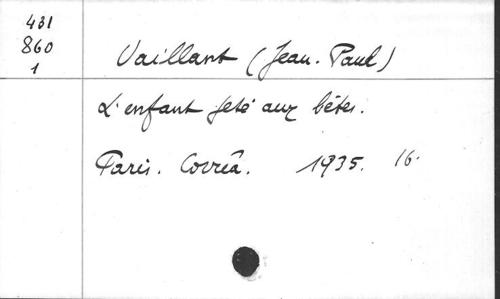 431
860
1
Vaillant (Jean-Paul)
L'enfant jeté aux bêtes.
Paris. Corrêa. 1935. 16°